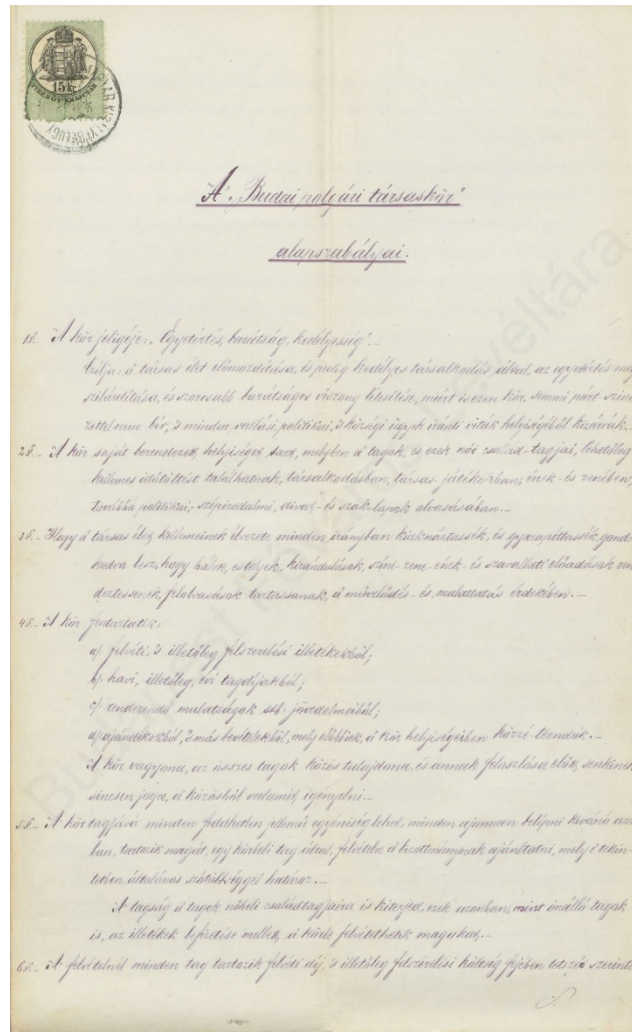 15 kr
TIZENÖT KRAJCZÁR
MAGYAR KIRÁLYI BELÜGY
A „Budai polgári társaskör"
alapszabályai.
1§.- A kör jeligéje: „Egyetértés, barátság, kedélyesség".-
Czélja: a társas élet előmozdítása, és pedig kedélyes társalkodás által, az egyetértés meg
szilárdítása, és szorosabb barátságos viszony létesítése, miért is ezen kör, semmi párt szine
zettel nem bír, s minden vallási, politikai, s községi ügyek iránti viták helyiségéből kizárvák.-
2§.- A kör saját berendezett helyiséget tart, melyben a tagok, és ezek női család-tagjai, lehetőleg
kellemes időtöltést találhatnak, társalkodásban, társas-játékokban, ének- és zenében,
továbbá politikai,- szépirodalmi, divat- és szak-lapok olvasásában.-
3§.- Hogy a társas élet kellemeinek élvezete minden irányban kiaknáztassék, és gyarapíttassék, gondos
kodva lesz, hogy bálok, estélyek, kirándulások, szini- zene- ének- és szavallati előadások ren
deztessenek, felolvasások tartassanak, a művelődés- és mulattatás érdekében.-
4§.- A kör fentartatik:
a/. felvéti, s illetőleg felszerelési illetékekből;
b/. havi, illetőleg, évi tagdíjakból;
c/. rendezendő mulatságok stb. jövedelmeiből;
d/. ajándékokból, s más bevételekből, mely előbbiek, a kör helyiségeiben közzé teendők.-
A kör vagyona, az összes tagok közös tulajdona, és annak feloszlása előtt, senkinek
sincsen joga, a közösből valamit igényelni.-
5§.- A kör tagjává minden feddhetlen jellemű egyéniség lehet, minden újonnan belépni kívánó azon
ban, tartozik magát, egy körbeli tag által, felvételre a bizottmánynak ajánltatni, mely e tekin-
tetben, általános szótöbbséggel határoz.-
A tagság a tagok nőbeli családtagjaira is kiterjed, ezek azonban, mint önálló tagok
is, az illetékek befizetése mellett, a körbe felvétethetik magukat.-
6§.- A felvételnél minden tag tartozik felvéti díj, s illetőleg felszerelési költség fejében tetszés szerinti
Budapest Főváros Levéltára